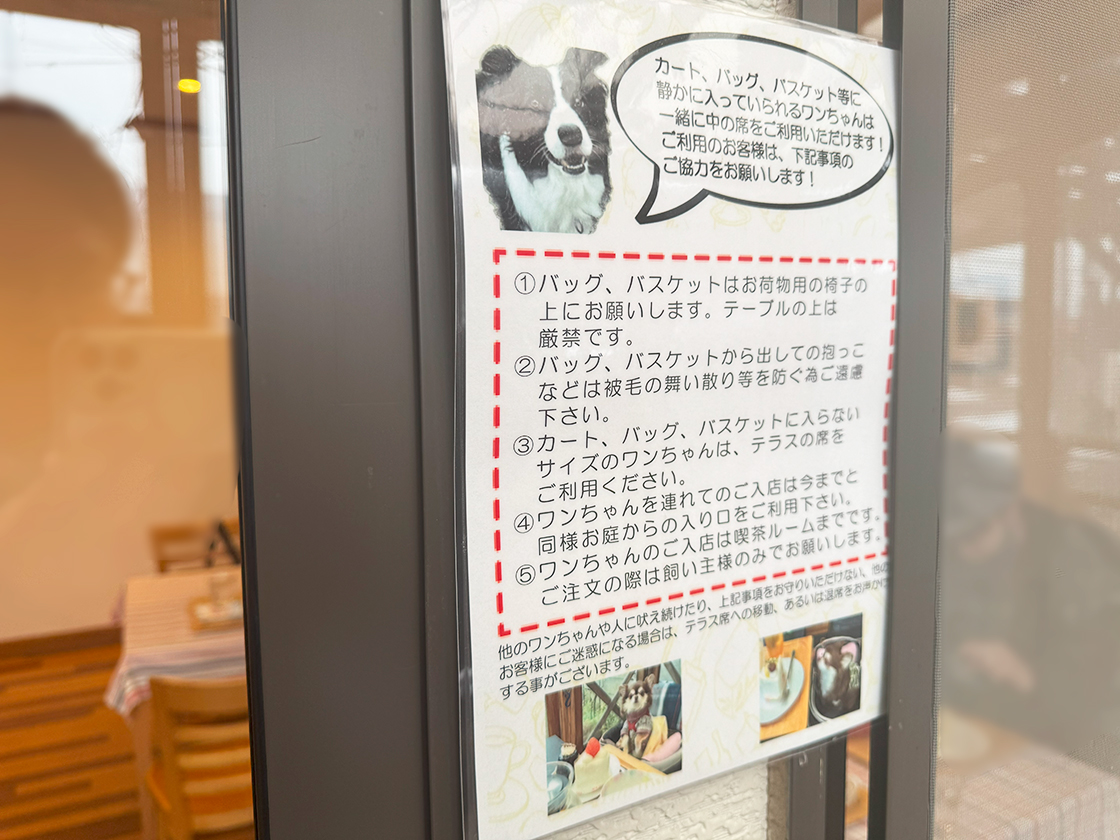 カート、バッグ、バスケット等に
静かに入っていられるワンちゃんは
一緒に中の席をご利用いただけます！
ご利用のお客様は、下記事項の
ご協力をお願いします！
①バッグ、バスケットはお荷物用の椅子の
上にお願いします。テーブルの上は
厳禁です。
②バッグ、バスケットから出しての抱っこ
などは被毛の舞い散り等を防ぐ為ご遠慮
下さい。
③カート、バッグ、バスケットに入らない
サイズのワンちゃんは、テラスの席を
ご利用ください。
④ワンちゃんを連れてのご入店は今までと
同様お庭からの入り口をご利用下さい。
⑤ワンちゃんのご入店は喫茶ルームまでです。
ご注文の際は飼い主様のみでお願いします。
他のワンちゃんや人に吠え続けたり、上記事項をお守りいただけない、他の
お客様にご迷惑になる場合は、テラス席への移動、あるいは退席をお声かけ
する事がございます。